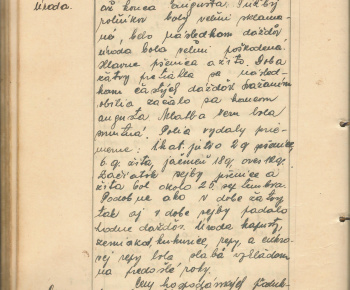 úroda.
až konca augusta. Tužby
roľníkov boly veľmi sklama-
né, lebo následkom dažďov
úroda bola veľmi poškodená.
Hlavne pšenica a žito. Doba
žatvy pretiahla sa násled-
kom častých dažďov. S vážaním
obilia začalo sa koncom
augusta. Mlatba tem bola
Polia vydaly prie-
merne: 1 kat. jutro 7 q pšenice,
6 q. žita, jačmeň 18 q, oves 12 q.
Začiatok sejby pšenice a
žita bol okolo 25. septembra.
Podobne ako v dobe žatvy
tak aj v dobe sejby padalo
hodne dažďov. Úroda kapusty,
zemiakov, kukurice, repy, a cukro-
vej repy bola slabá vzhľadom
na predošlé roky.
Ceny hospodárskych produk-